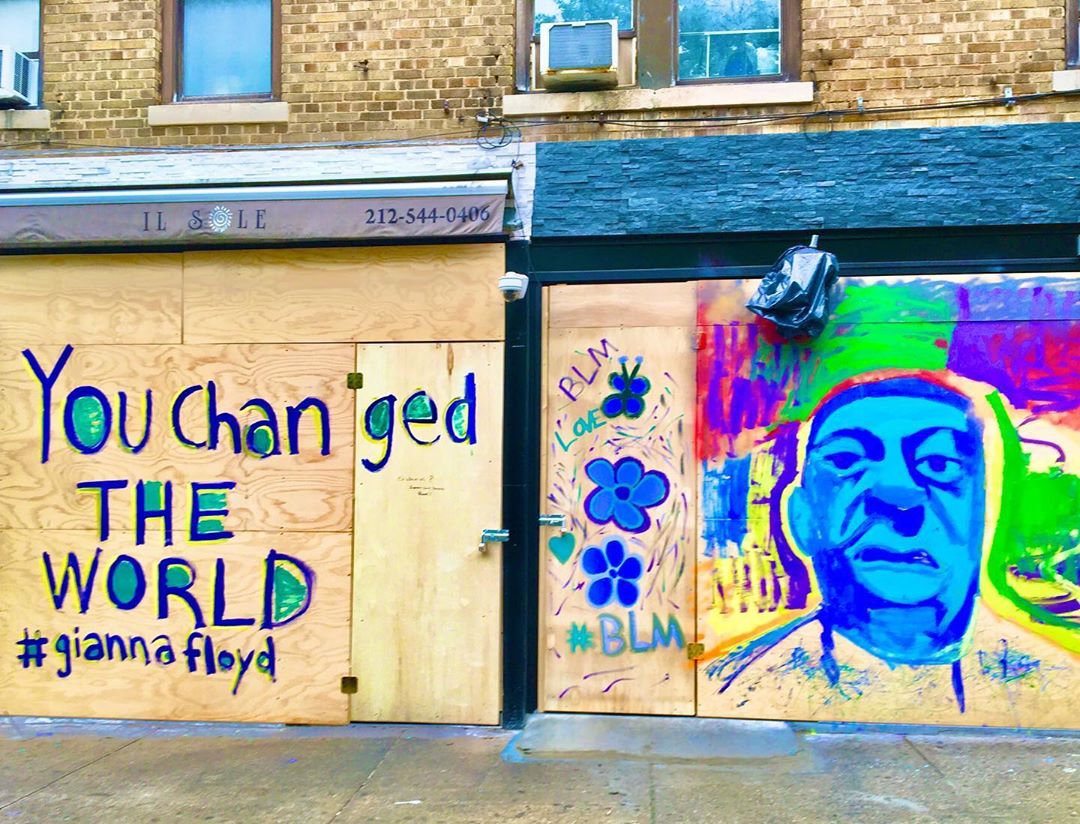 IL SOLE
212-544-0406
You Changed
THE
WORLD
#giannafloyd
BLM
LOVE
#BLM